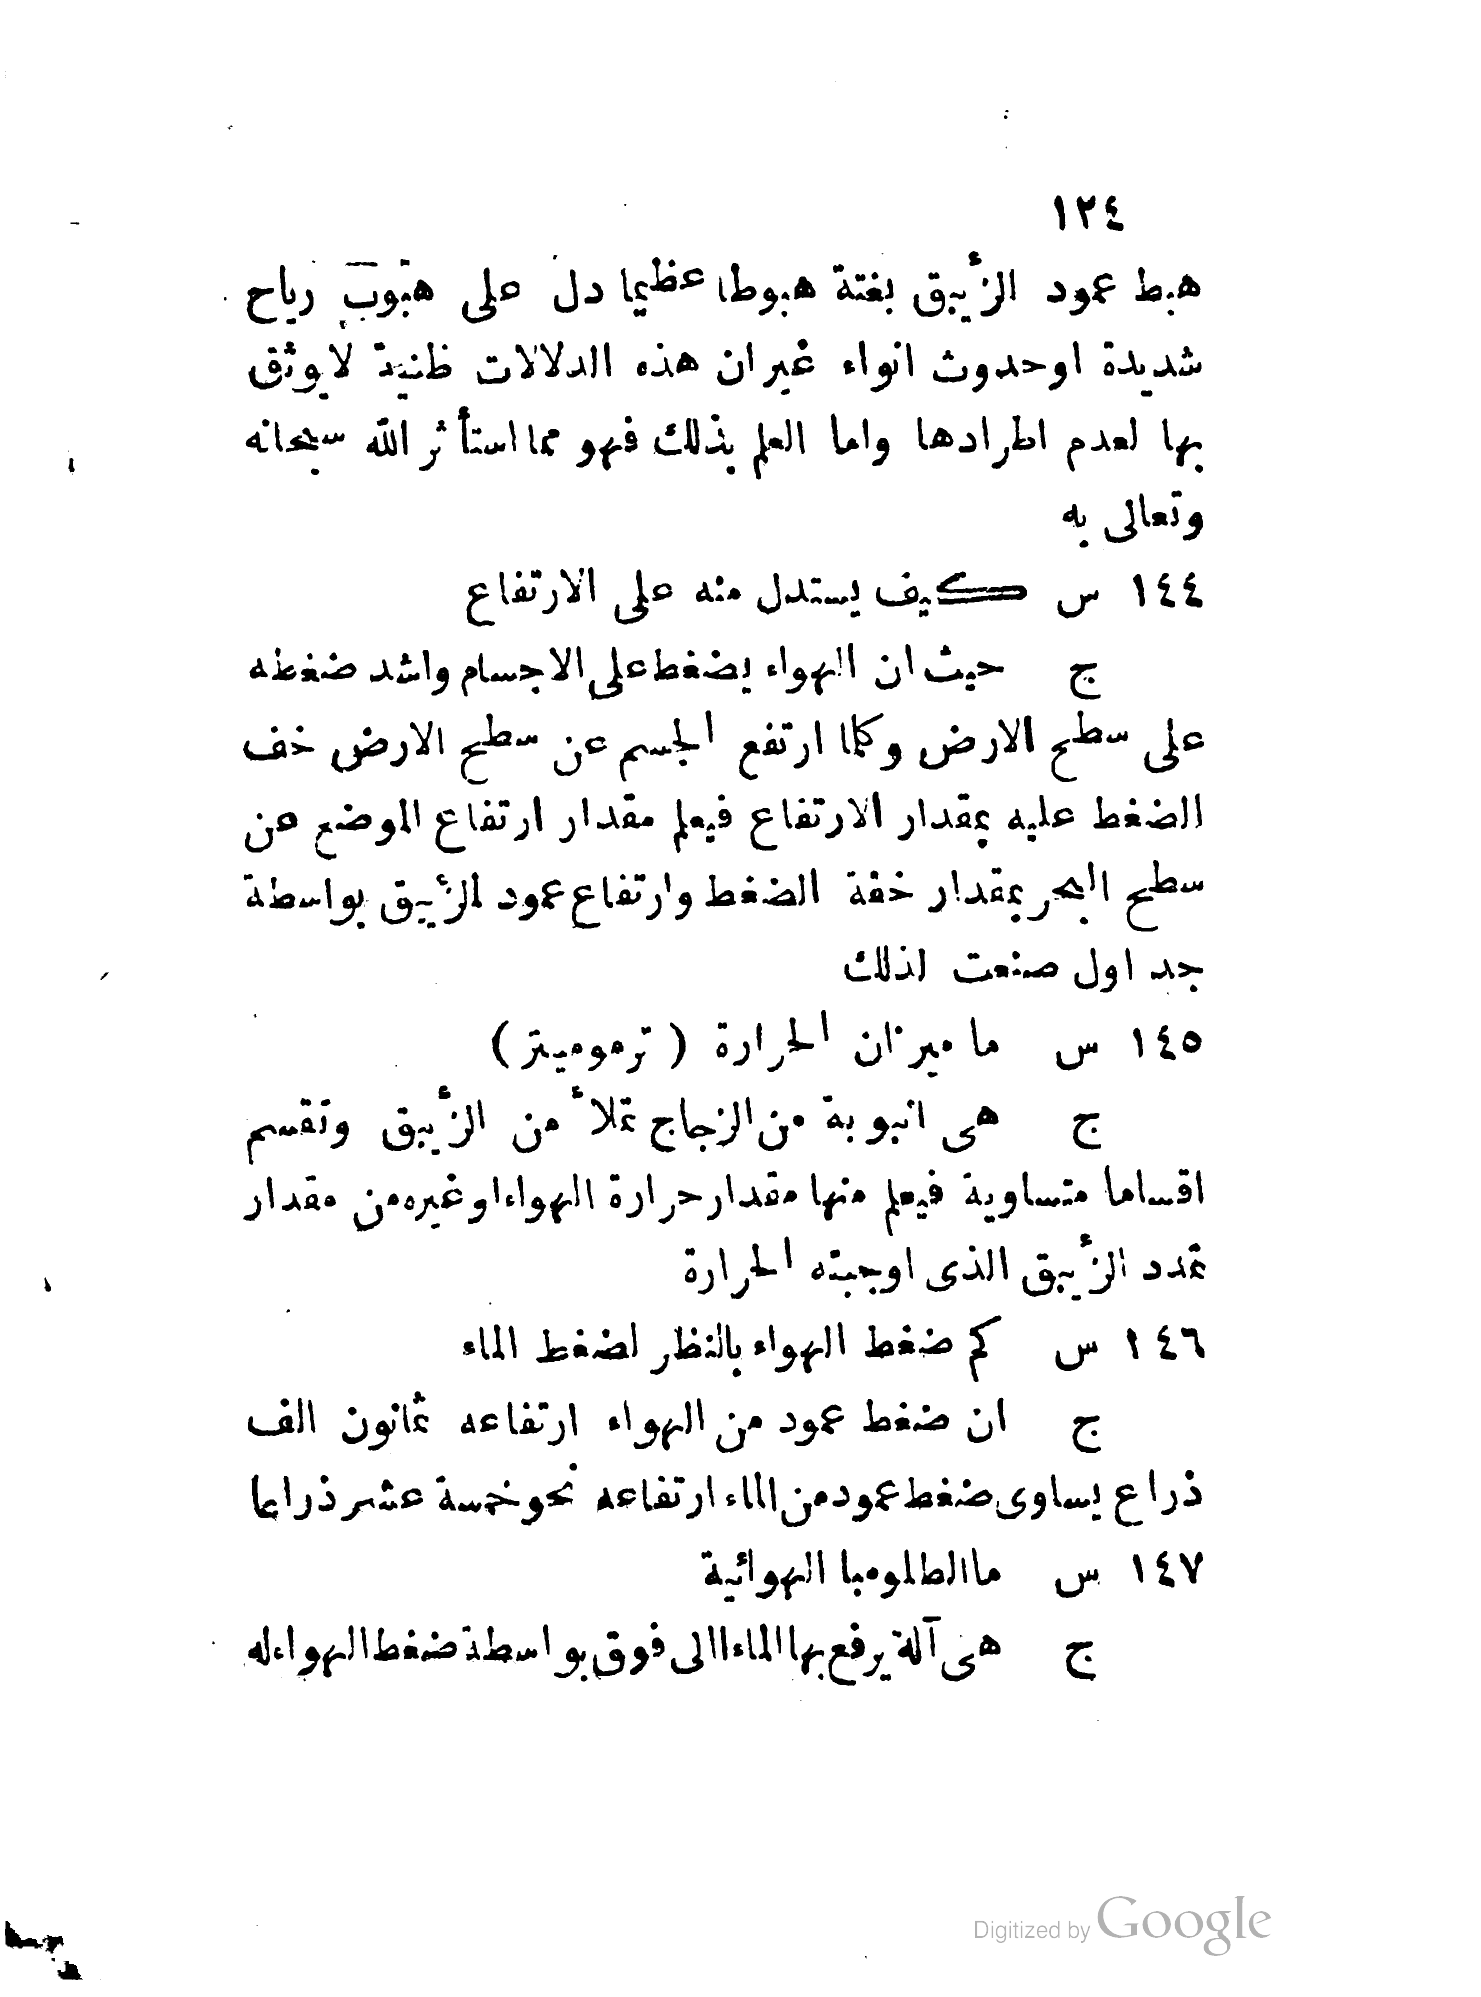 ١٢٤
هبط عمود الزئيبق بغتة هبوطا عظيما دل على هبوب رياح
شديدة اوحدوث انواء غيران هذه الدلالات ظنية لايوثق
بها لعدم اطرادها واما العلم بذلك فهو مما استأثر الله سبحانه
وتعالى به
١٤٤ س كيف يستدل منه على الارتفاع
ج حيث ان الهواء يضغط على الاجسام واشد ضغطه
على سطح الارض وكلما ارتفع الجسم عن سطح الارض خف
الضغط عليه بمقدار الارتفاع فيعلم مقدار ارتفاع الموضع عن
سطح البحر بمقدار خفة الضغط وارتفاع عمود الزئيبق بواسطة
جداول صنعت لذلك
١٤٥ س ما ميزان الحرارة ( ترموميتر )
ج هى انبوبة من الزجاج تملأ من الزئيبق وتقسم
اقساما متساوية فيعلم منها مقدار حرارة الهواء او غيره من مقدار
تمدد الزئيبق الذى اوجبته الحرارة
١٤٦ س كم ضغط الهواء بالنظر لضغط الماء
ج ان ضغط عمود من الهواء ارتفاعه ثمانون الف
ذراع يساوى ضغط عمود من الماء ارتفاعه نحو خمسة عشر ذراعا
١٤٧ س ما الطلومبا الهوائية
ج هى آلة يرفع بها الماء الى فوق بواسطة ضغط الهواء له
Digitized by Google